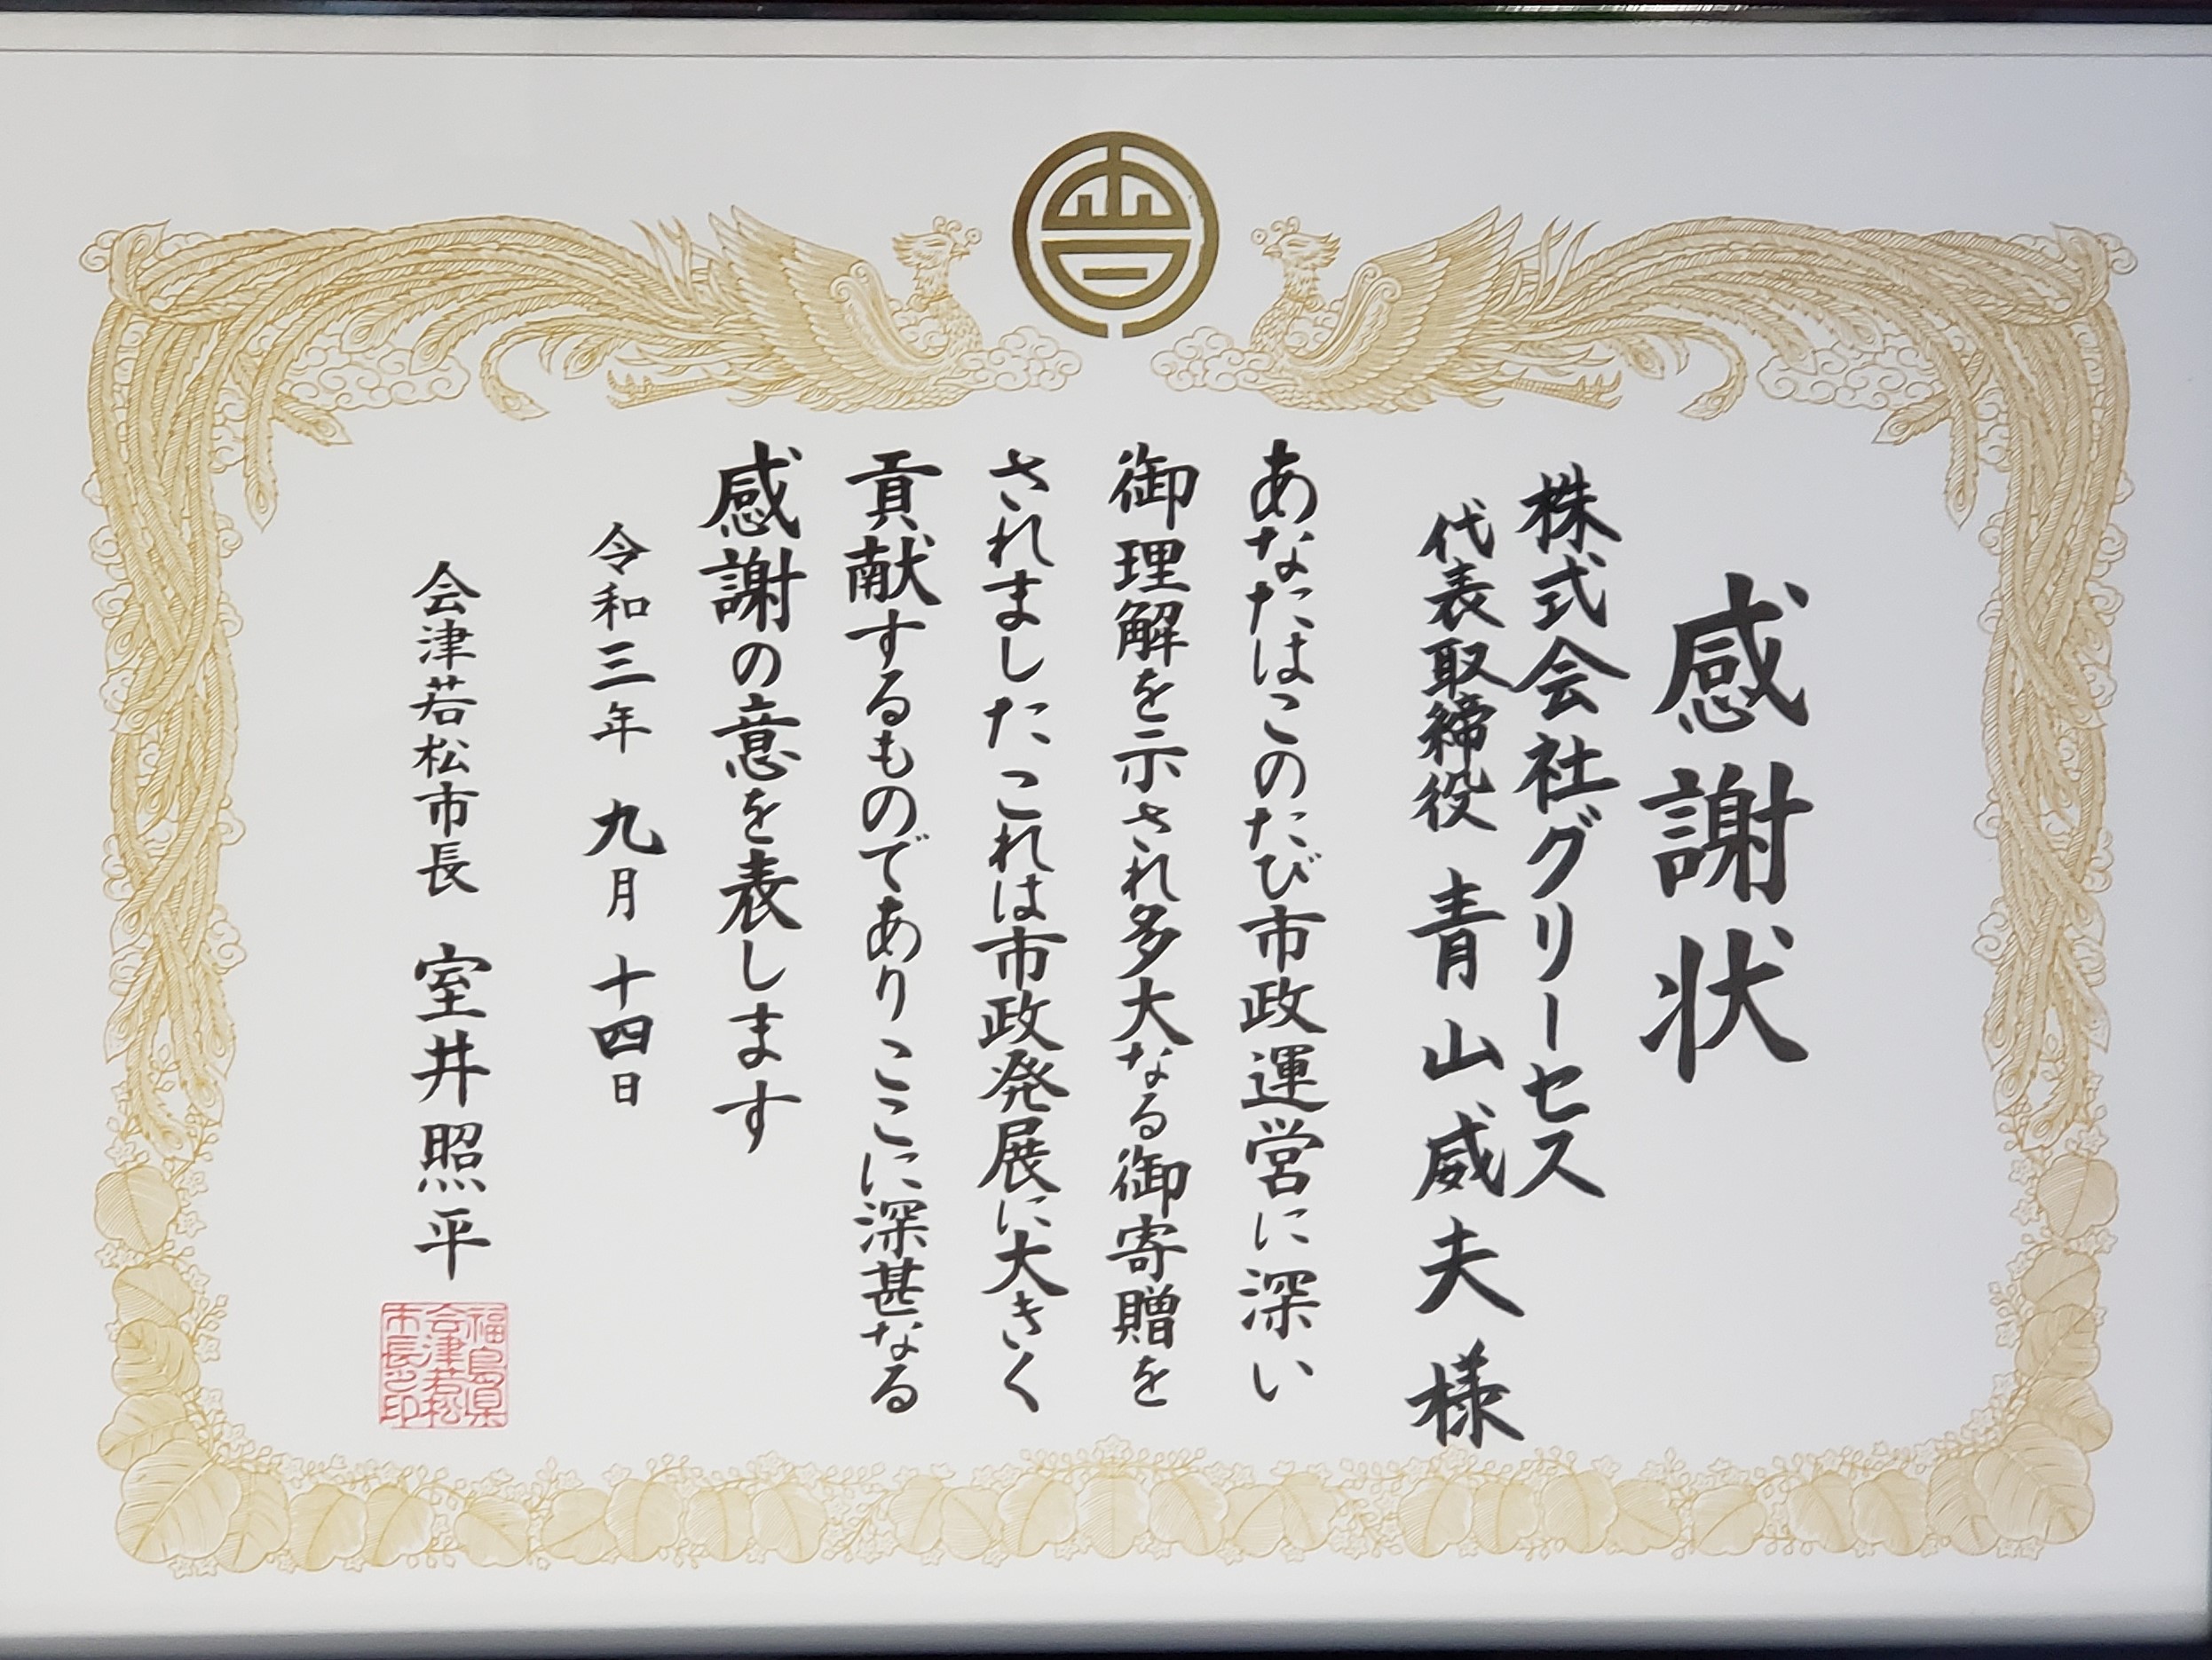 感謝状
株式会社グリーセス
代表取締役 青山威夫様
あなたはこのたび市政運営に深い
御理解を示され多大なる御寄贈を
されましたこれは市政発展に大きく
貢献するものでありここに深甚なる
感謝の意を表します
令和三年 九月 十四日
会津若松市長 室井照平
福島県
会津若松
市長之印